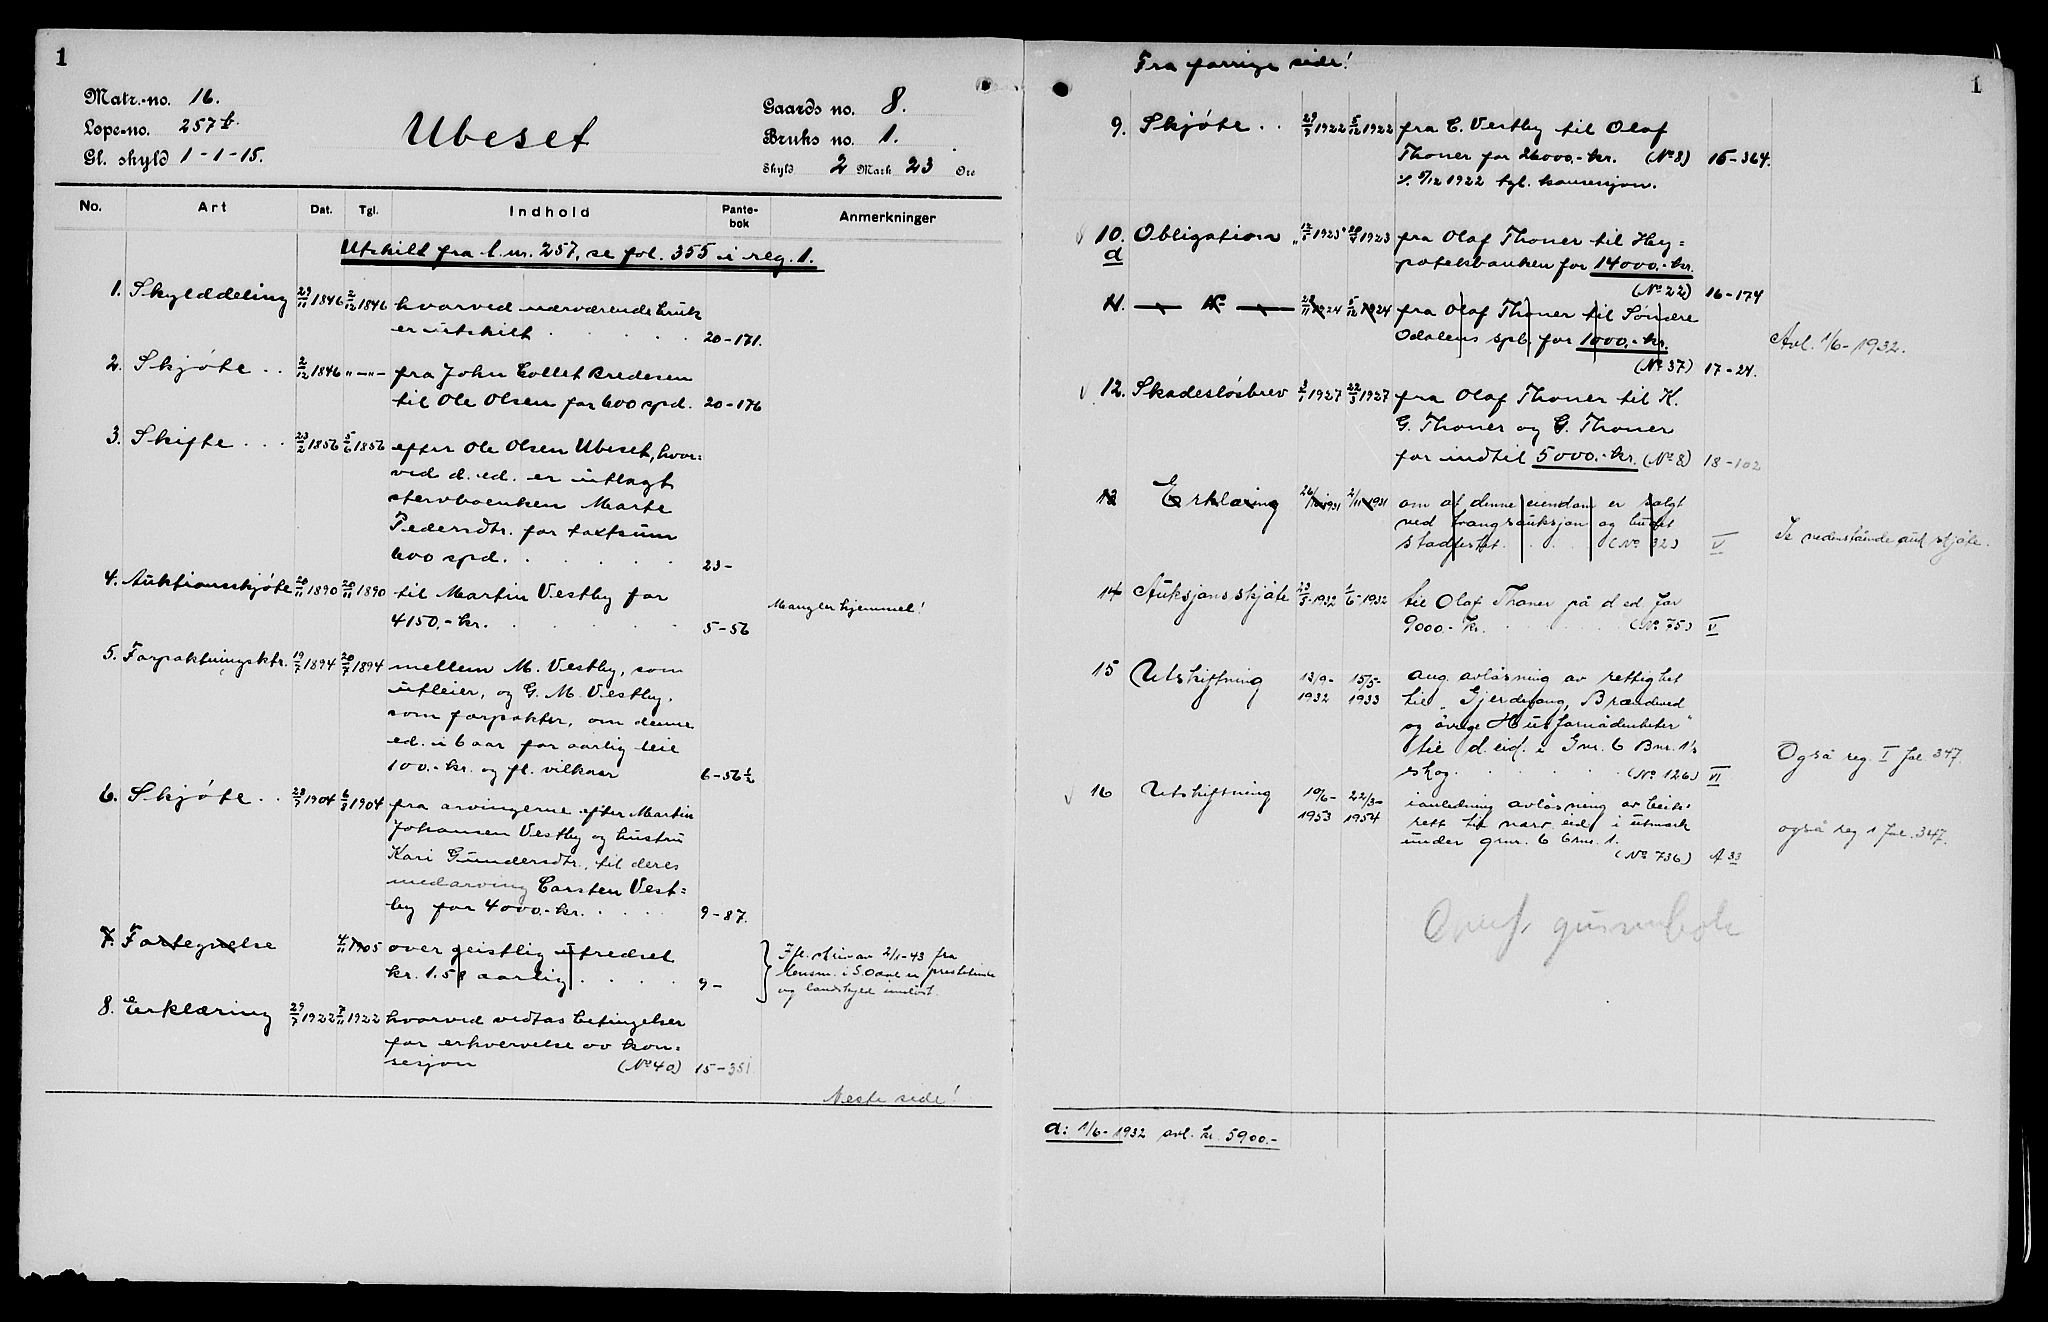 1
Matr.-no. 16.
Løpe-no. 257 b.
Gl. skyld 1-1-15.
Ubeset
Gaards no. 8.
Bruks no. 1.
Skyld 2 Mark 23 Øre
No. Art Dat. Tgl. Indhold Pante-bok Anmerkninger
Utskilt fra l.nr. 257, se fol. 355 i reg. 1.
1. Skylddeling 29/11 1846 2/12 1846 hvorved nærværende bruk
er utskilt . . . . 20-171.
2. Skjøte . . 2/12 1846 "—"— fra John Collet Bredesen
til Ole Olsen for 600 spd. 20-176
3. Skifte . . . 23/2 1856 5/6 1856 efter Ole Olsen Ubeset, hvor=
ved d. ed. er utlagt
stervboenken Marte
Pedersdtr. for taxtsum
600 spd. . . . . . 23-
4. Auktionsskjøte 20/11 1890 20/11 1890 til Martin Vestby for
4150.- kr. . . . . 5-56
Mangler hjemmel!
5. Forpaktningsktr. 19/7 1894 20/7 1894 mellem M. Vestby, som
utleier, og G. M. Vestby,
som forpakter, om denne
ed. i 6 aar for aarlig leie
100.- kr. og fl. vilkaar 6-56 1/2
6. Skjøte . . 28/7 1904 6/8 1904 fra arvingerne efter Martin
Johansen Vestby og hustru
Kari Gundersdtr. til deres
medarving Carsten Vest=
by for 4000.- kr. . . . 9-87.
7. Fortegnelse 4/11 1905 over geistlig utredsel
kr. 1.58 aarlig . . . . 9-
Ifl. skriv av 2/1-43 fra
lensm. i S. Odal er prestetiende
og landskyld innløst.
8. Erklæring 29/7 1922 7/11 1922 hvorved vedtas betingelser
for erhvervelse av kon=
sesjon (No 40) 15-351
Neste side!
Fra forrige side!
1
9. Skjøte . . 29/7 1922 5/12 1922 fra C. Vestby til Olaf
Thoner for 26000.- kr. (No 8) 15-364.
5/12 1922 tgl. konsesjon.
10. Obligation 1923 1923 fra Olaf Thoner til Hy=
d potekbanken for 14000.- kr.
(No 22) 16-174
11. — " — 28/11 1924 5/12 1924 fra Olaf Thoner til Søndre
Odalens spb. for 1000.- kr.
(No 37) 17-24.
Avl. 1/6-1932.
12. Skadesløsbrev 3/1 1927 22/3 1927 fra Olaf Thoner til K.
G. Thoner og G. Thoner
for indtil 5000.- kr. (No 8) 18-102
13 Erklæring 26/10 1931 2/11 1931 om at denne eiendom er solgt
ved tvangsauksjon og budet
stadfestet. . . . (No 32) V
Se nedenstående auk skjøte.
14 Auksjonsskjøte 23/5-1932 1/6-1932 til Olaf Thoner på d ed for
9000.- kr. . . . . (No 75) V
15 Utskiftning 13/9- 15/5- ang. avløsning av rettighet
1932 1933 til "Gjerdefang, Brændeved
og øvrige Husfornødenheter"
til d. eid. i Gnr. 6 Bnr. 1's
skog. . . . . (No 126) VI
Også reg. I fol 347.
16 Utskiftning 10/6- 22/3- i anledning avløsning av beite-
1953 1954 rett til nærv. eid i utmark
under gnr. 6 bnr. 1.
(No 736) A 33
også reg 1 fol. 347.
a: 1/6-1932 avl. kr. 5900.-